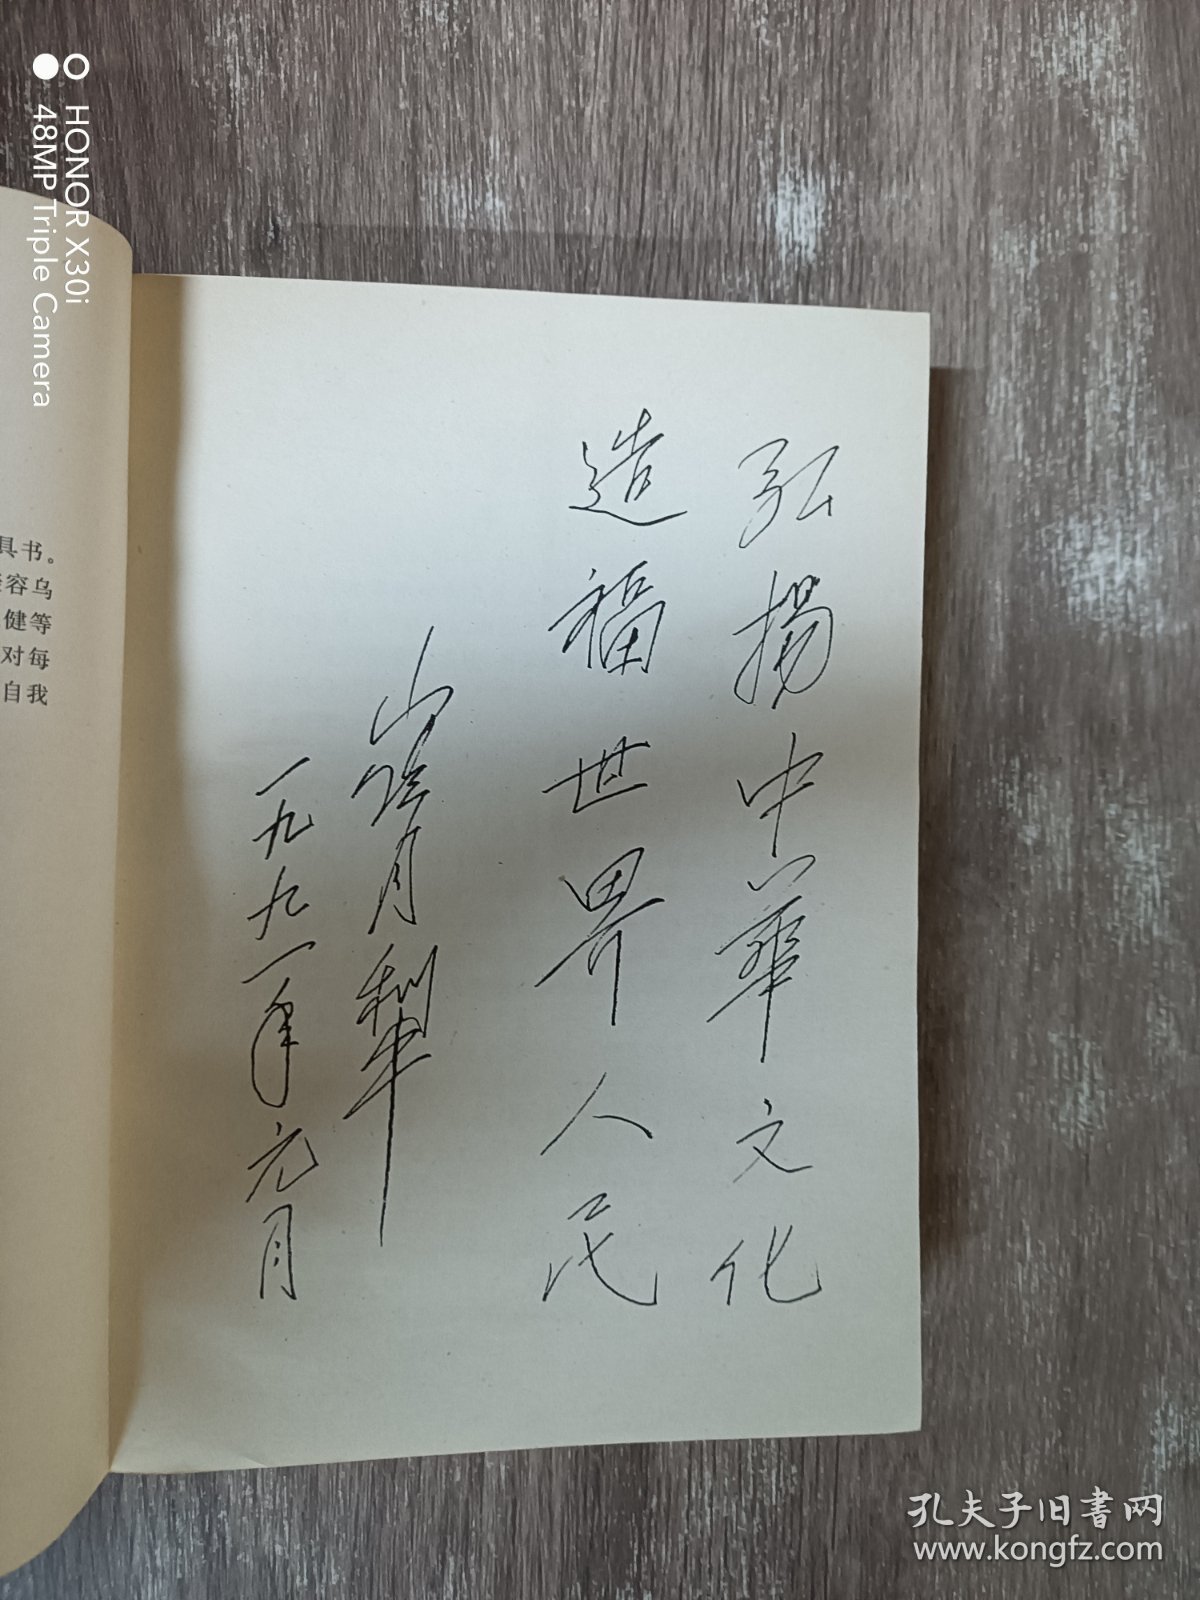 弘揚中華文化
造福世界人民
一九九一年元月
具书。
容乌
健等
对每
自我
HONOR X30i
48MP Triple Camera
孔夫子旧书网
www.kongfz.com